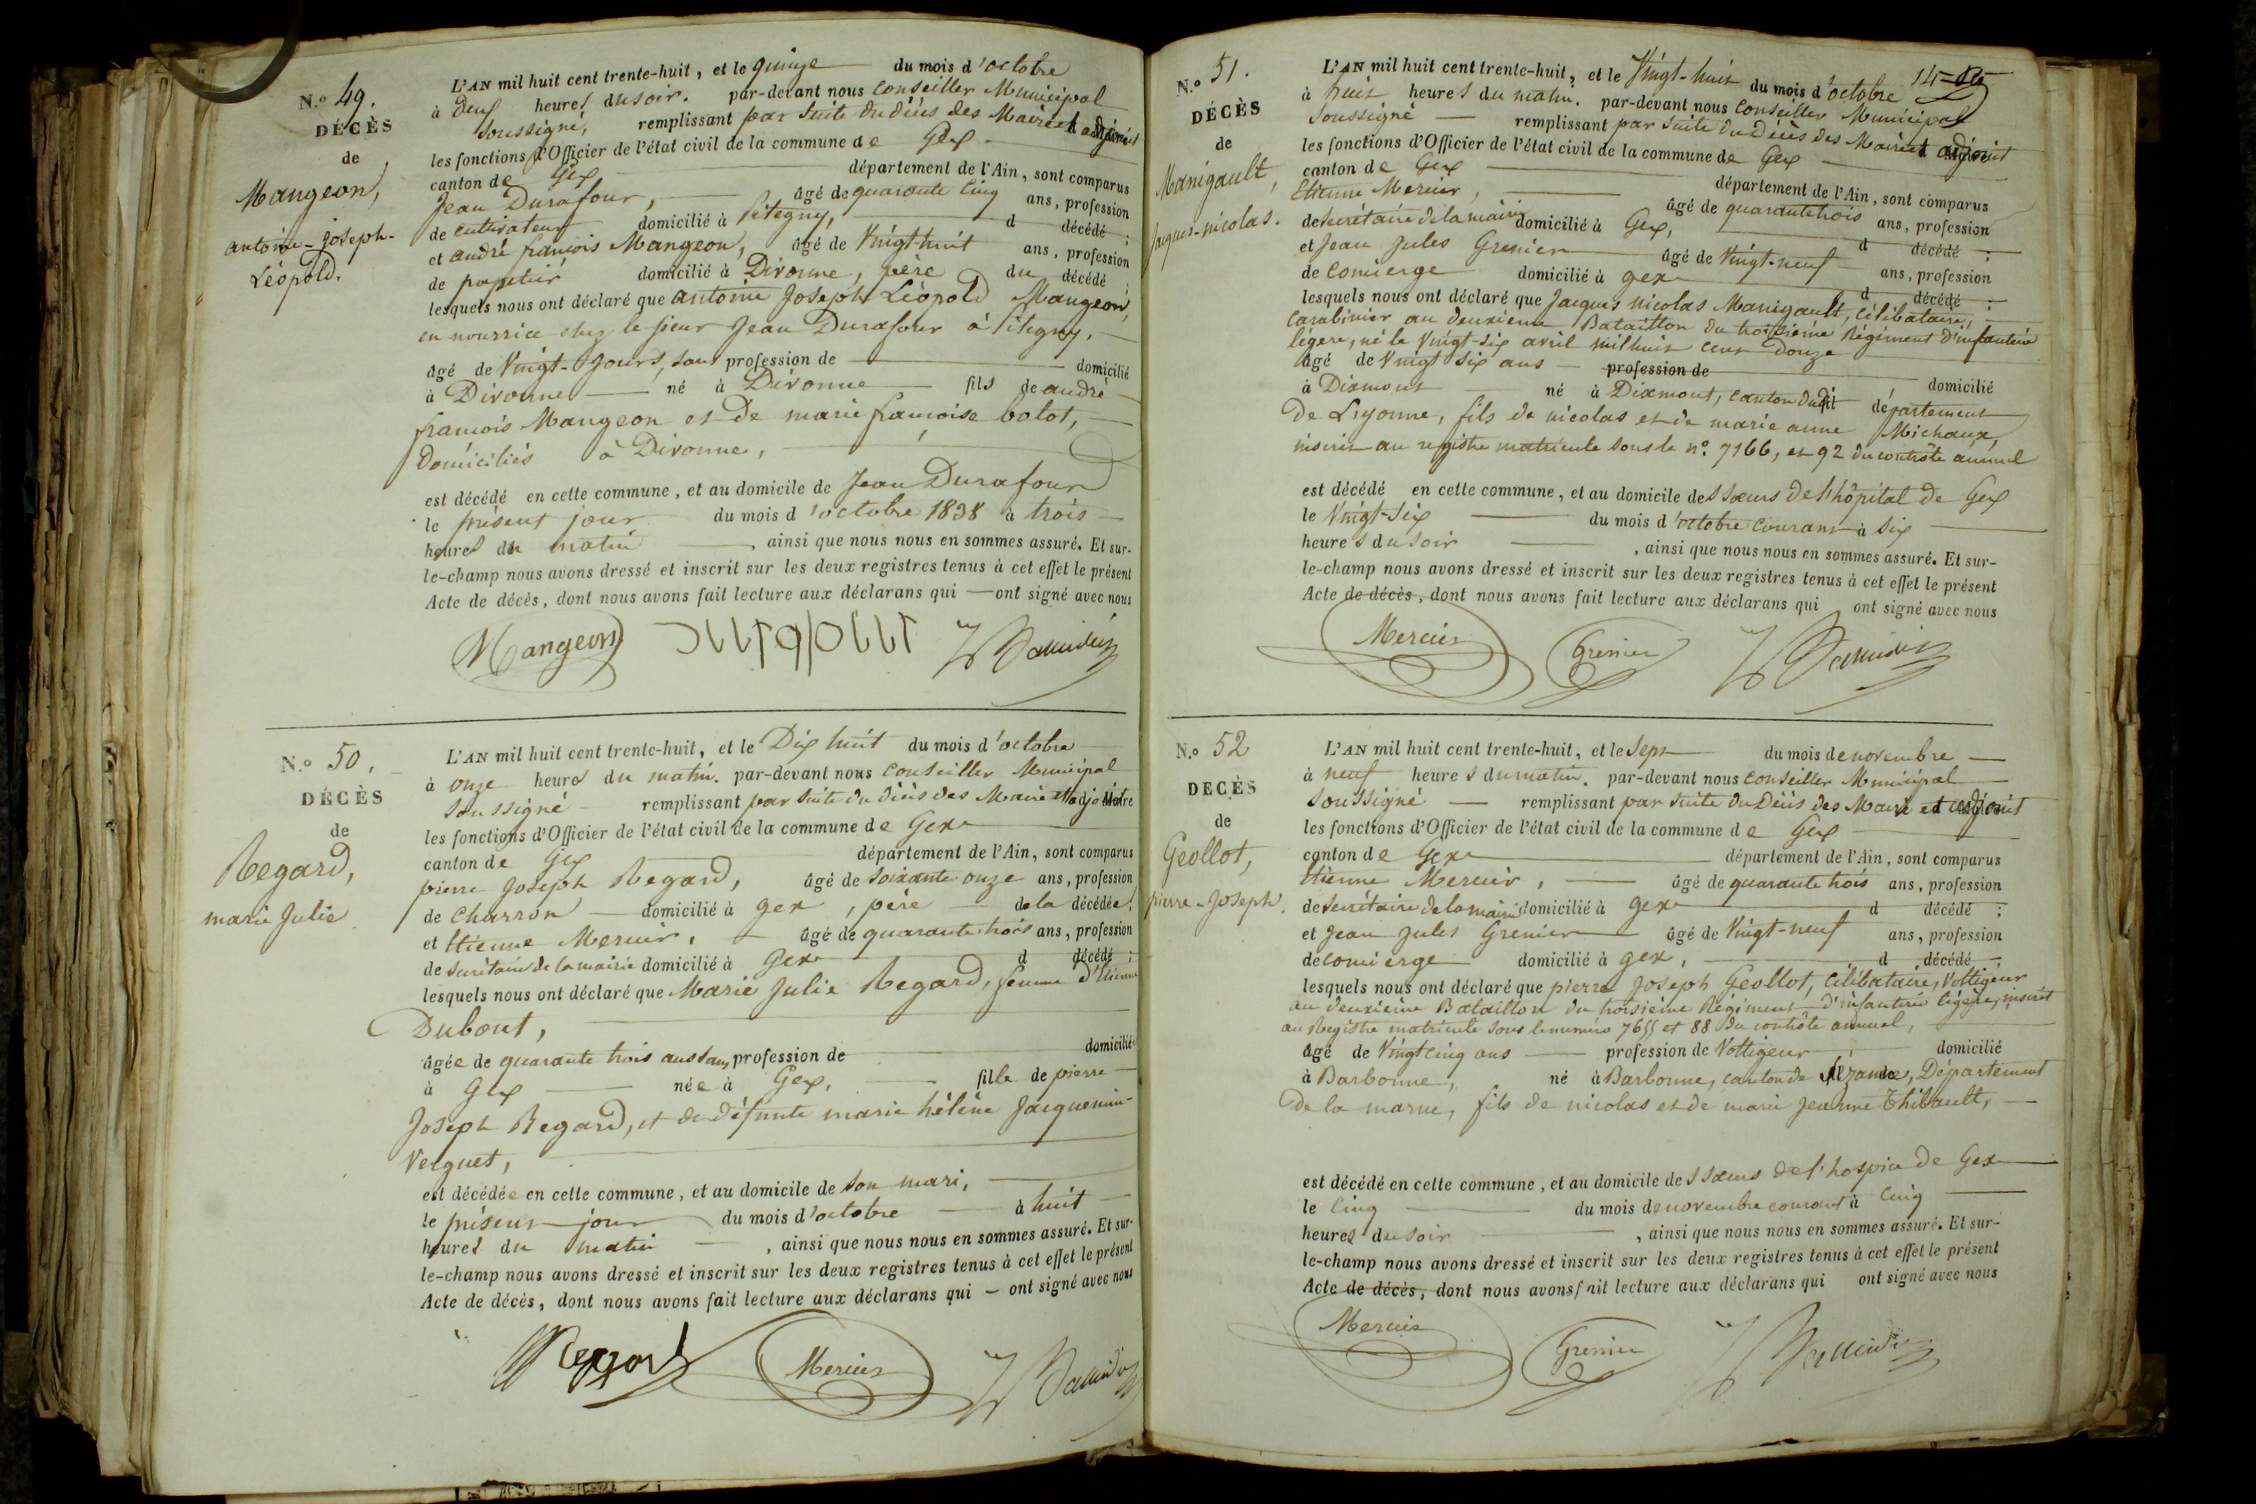 N.o 49.
DÉCÈS
de
Mangeon,
antoine-joseph-
Léopold.
L'AN mil huit cent trente-huit, et le quinze du mois d'octobre
à deux heures du soir. par-devant nous Conseiller Municipal
soussigné, remplissant par suite du décès des Maire et adjoint
les fonctions d'Officier de l'état civil de la commune de Gex
canton de Gex département de l'Ain, sont comparus
Jean Durafour, âgé de quarante cinq ans, profession
de cultivateur domicilié à Pitegny, d décédé ;
et andré françois Mangeon, âgé de Vingt huit ans, profession
de papetier domicilié à Divonne, père du décédé ;
lesquels nous ont déclaré que antoine Joseph Léopold Mangeon,
en nourrice chez le sieur Jean Durafour à Pitegny,
âgé de Vingt-Jours, sans profession de domicilié
à Divonne né à Divonne fils de andré
françois Mangeon et de marie françoise bolot,
Domiciliés à Divonne,
est décédé en cette commune, et au domicile de Jean Durafour
le présent jour du mois d'octobre 1838 à trois
heures du matin, ainsi que nous nous en sommes assuré. Et sur-
le-champ nous avons dressé et inscrit sur les deux registres tenus à cet effet le présent
Acte de décès, dont nous avons fait lecture aux déclarans qui ont signé avec nous
Mangeon
N.o 50,
DÉCÈS
de
Regard,
marie Julie
L'AN mil huit cent trente-huit, et le Dix huit du mois d'octobre
à onze heures du matin. par-devant nous Conseiller Municipal
soussigné remplissant par suite du décès des Maire et adjoint
les fonctions d'Officier de l'état civil de la commune de Gex
canton de Gex département de l'Ain, sont comparus
pierre Joseph Regard, âgé de soixante onze ans, profession
de Charron domicilié à gex, père de la décédée ;
et Etienne Mercier, âgé de quarante trois ans, profession
de Secrétaire de la mairie domicilié à Gex d décédé ;
lesquels nous ont déclaré que Marie Julie Regard, femme d'Etienne
Dubout,
âgée de quarante trois ans sans profession de domiciliée
à Gex née à Gex, fille de pierre
Joseph Regard, et de défunte marie hélène Jacquemin-
Verguet,
est décédée en cette commune, et au domicile de son mari,
le présent jour du mois d'octobre à huit
heures du matin, ainsi que nous nous en sommes assuré. Et sur-
le-champ nous avons dressé et inscrit sur les deux registres tenus à cet effet le présent
Acte de décès, dont nous avons fait lecture aux déclarans qui ont signé avec nous
Regard Mercier
N.o 51.
DÉCÈS
de
Manigault,
Jaques-nicolas.
L'AN mil huit cent trente-huit, et le Vingt-huit du mois d'octobre
à huit heures du matin. par-devant nous Conseiller Municipal
Soussigné remplissant par suite du Décès des Maire et adjoint
les fonctions d'Officier de l'état civil de la commune de Gex
canton de Gex département de l'Ain, sont comparus
Etienne Mercier, âgé de quarante trois ans, profession
de secrétaire de la mairie domicilié à Gex, d décédé ;
et Jean Jules Grenier âgé de Vingt-neuf ans, profession
de Concierge domicilié à gex d décédé ;
lesquels nous ont déclaré que Jacques nicolas Manigault, célibataire,
Carabinier au deuxieme Bataillon du troisieme Régiment d'infanterie
légere, né le Vingt-six avril mil huit cent Douze
âgé de Vingt six ans profession de domicilié
à Dixmont né à Dixmont, canton dudit département
De Lyonne, fils de nicolas et de marie anne Michaux,
inscrit au registre matricule sous le n.o 7166, et 92 du contrôle annuel
est décédé en cette commune, et au domicile des sœurs de l'hôpital de Gex
le Vingt-six du mois d'octobre courant à six
heures du soir, ainsi que nous nous en sommes assuré. Et sur-
le-champ nous avons dressé et inscrit sur les deux registres tenus à cet effet le présent
Acte de décès, dont nous avons fait lecture aux déclarans qui ont signé avec nous
Mercier Grenier
N.o 52
DECÈS
de
Geollot,
pierre-Joseph.
L'AN mil huit cent trente-huit, et le Sept du mois de novembre
à neuf heures du matin. par-devant nous Conseiller Municipal
soussigné remplissant par suite du Décès des Maire et adjoint
les fonctions d'Officier de l'état civil de la commune de Gex
canton de Gex département de l'Ain, sont comparus
Etienne Mercier, âgé de quarante trois ans, profession
de secrétaire de la mairie domicilié à gex d décédé ;
et Jean Jules Grenier âgé de Vingt-neuf ans, profession
de concierge domicilié à gex, d décédé ;
lesquels nous ont déclaré que pierre Joseph Geollot, Célibataire, Voltigeur
au deuxième Bataillon du troisieme Régiment d'infanterie légère, inscrit
au Registre matricule sous le numéro 7655 et 88 du contrôle annuel,
âgé de Vingt cinq ans profession de Voltigeur domicilié
à Barbonne, né à Barbonne, canton de Sézanne, Département
De la marne, fils de nicolas et de marie Jeanne Thibault,
est décédé en cette commune, et au domicile des sœurs de l'hospice de Gex
le cinq du mois de novembre courant à cinq
heures du soir, ainsi que nous nous en sommes assuré. Et sur-
le-champ nous avons dressé et inscrit sur les deux registres tenus à cet effet le présent
Acte de décès, dont nous avons fait lecture aux déclarans qui ont signé avec nous
Mercier Grenier